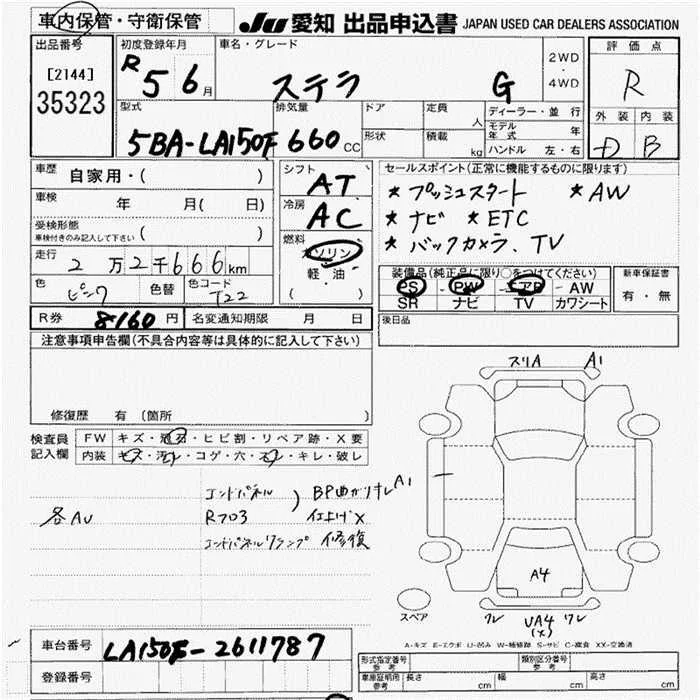 車内保管・守衛保管
JU 愛知 出品申込書 JAPAN USED CAR DEALERS ASSOCIATION
出品番号 初度登録年月 車名・グレード 2WD・4WD 評価点
[2144] R 5 6月 ステラ G R
35323
型式 排気量 ドア 定員 人 ディーラー・並行 外装 内装
5BA-LA150F 660cc 形状 積載 kg モデル年式 年 ハンドル 左・右 D B
車歴 自家用・( ) シフト AT セールスポイント(正常に機能するものに限ります)
車検 年 月( 日) 冷房 AC * プッシュスタート * AW
受検形態 車検付きのみ記入して下さい ( ) * ナビ * ETC
走行 2万2千666km 燃料 ガソリン 軽・油 ( ) * バックカメラ、TV
色 ピンク 色替 色コード T22
装備品(純正品に限り○をつけてください) 新車保証書
PS・PW・エアB・AW 有・無
SR ナビ TV カワシート
R券 8160円 名変通知期限 月 日 後日品
注意事項申告欄(不具合内容等は具体的に記入して下さい)
修復歴 有 (箇所
スリA A1
検査員記入欄 FW キズ・飛石・ヒビ割・リペア跡・X要
内装 キズ・汚レ・コゲ・穴・スレ・キレ・破レ
各AU
エンドパネル BP曲がりキレ
R フロ3 仕上げX
エンドパネルクランプ 修復
A1
A4
スペア
ワレ UA4 ワレ
(X)
A-キズ E-エクボ U-凹み W-補修跡 S-サビ C-腐食 XX-交換済
車台番号 LA150F-2611787
登録番号
形式指定番号 参考 類別区分番号 参考
車庫証明用 参考 長さ cm 幅 cm 高さ cm